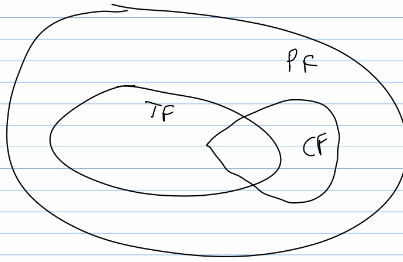 PF
TF
CF